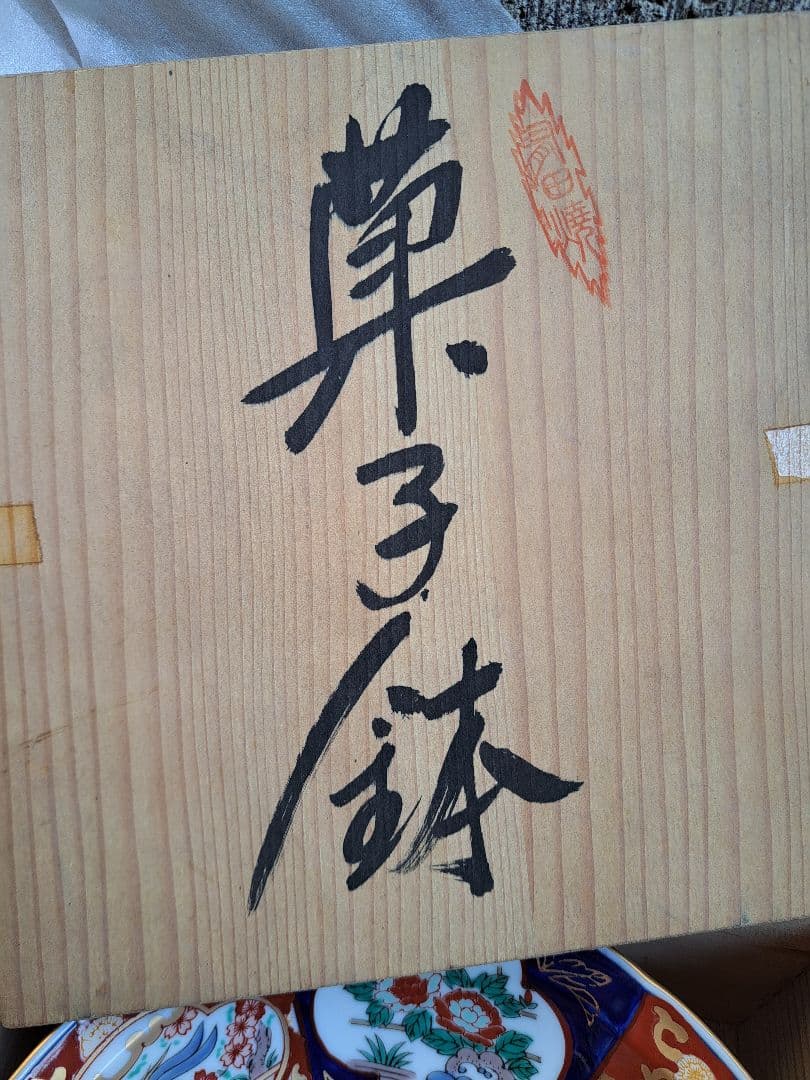 有田焼
菓子鉢